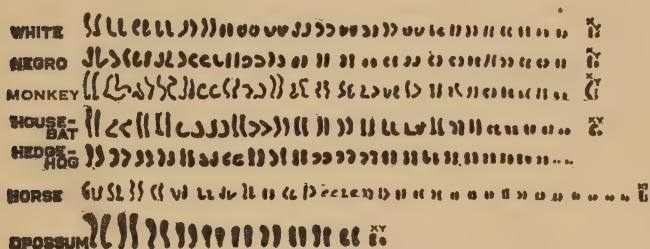 WHITE XY
NEGRO XY
MONKEY XY
HOUSE-
BAT XY
HEDGE-
HOG
HORSE XY
OPOSSUM XY